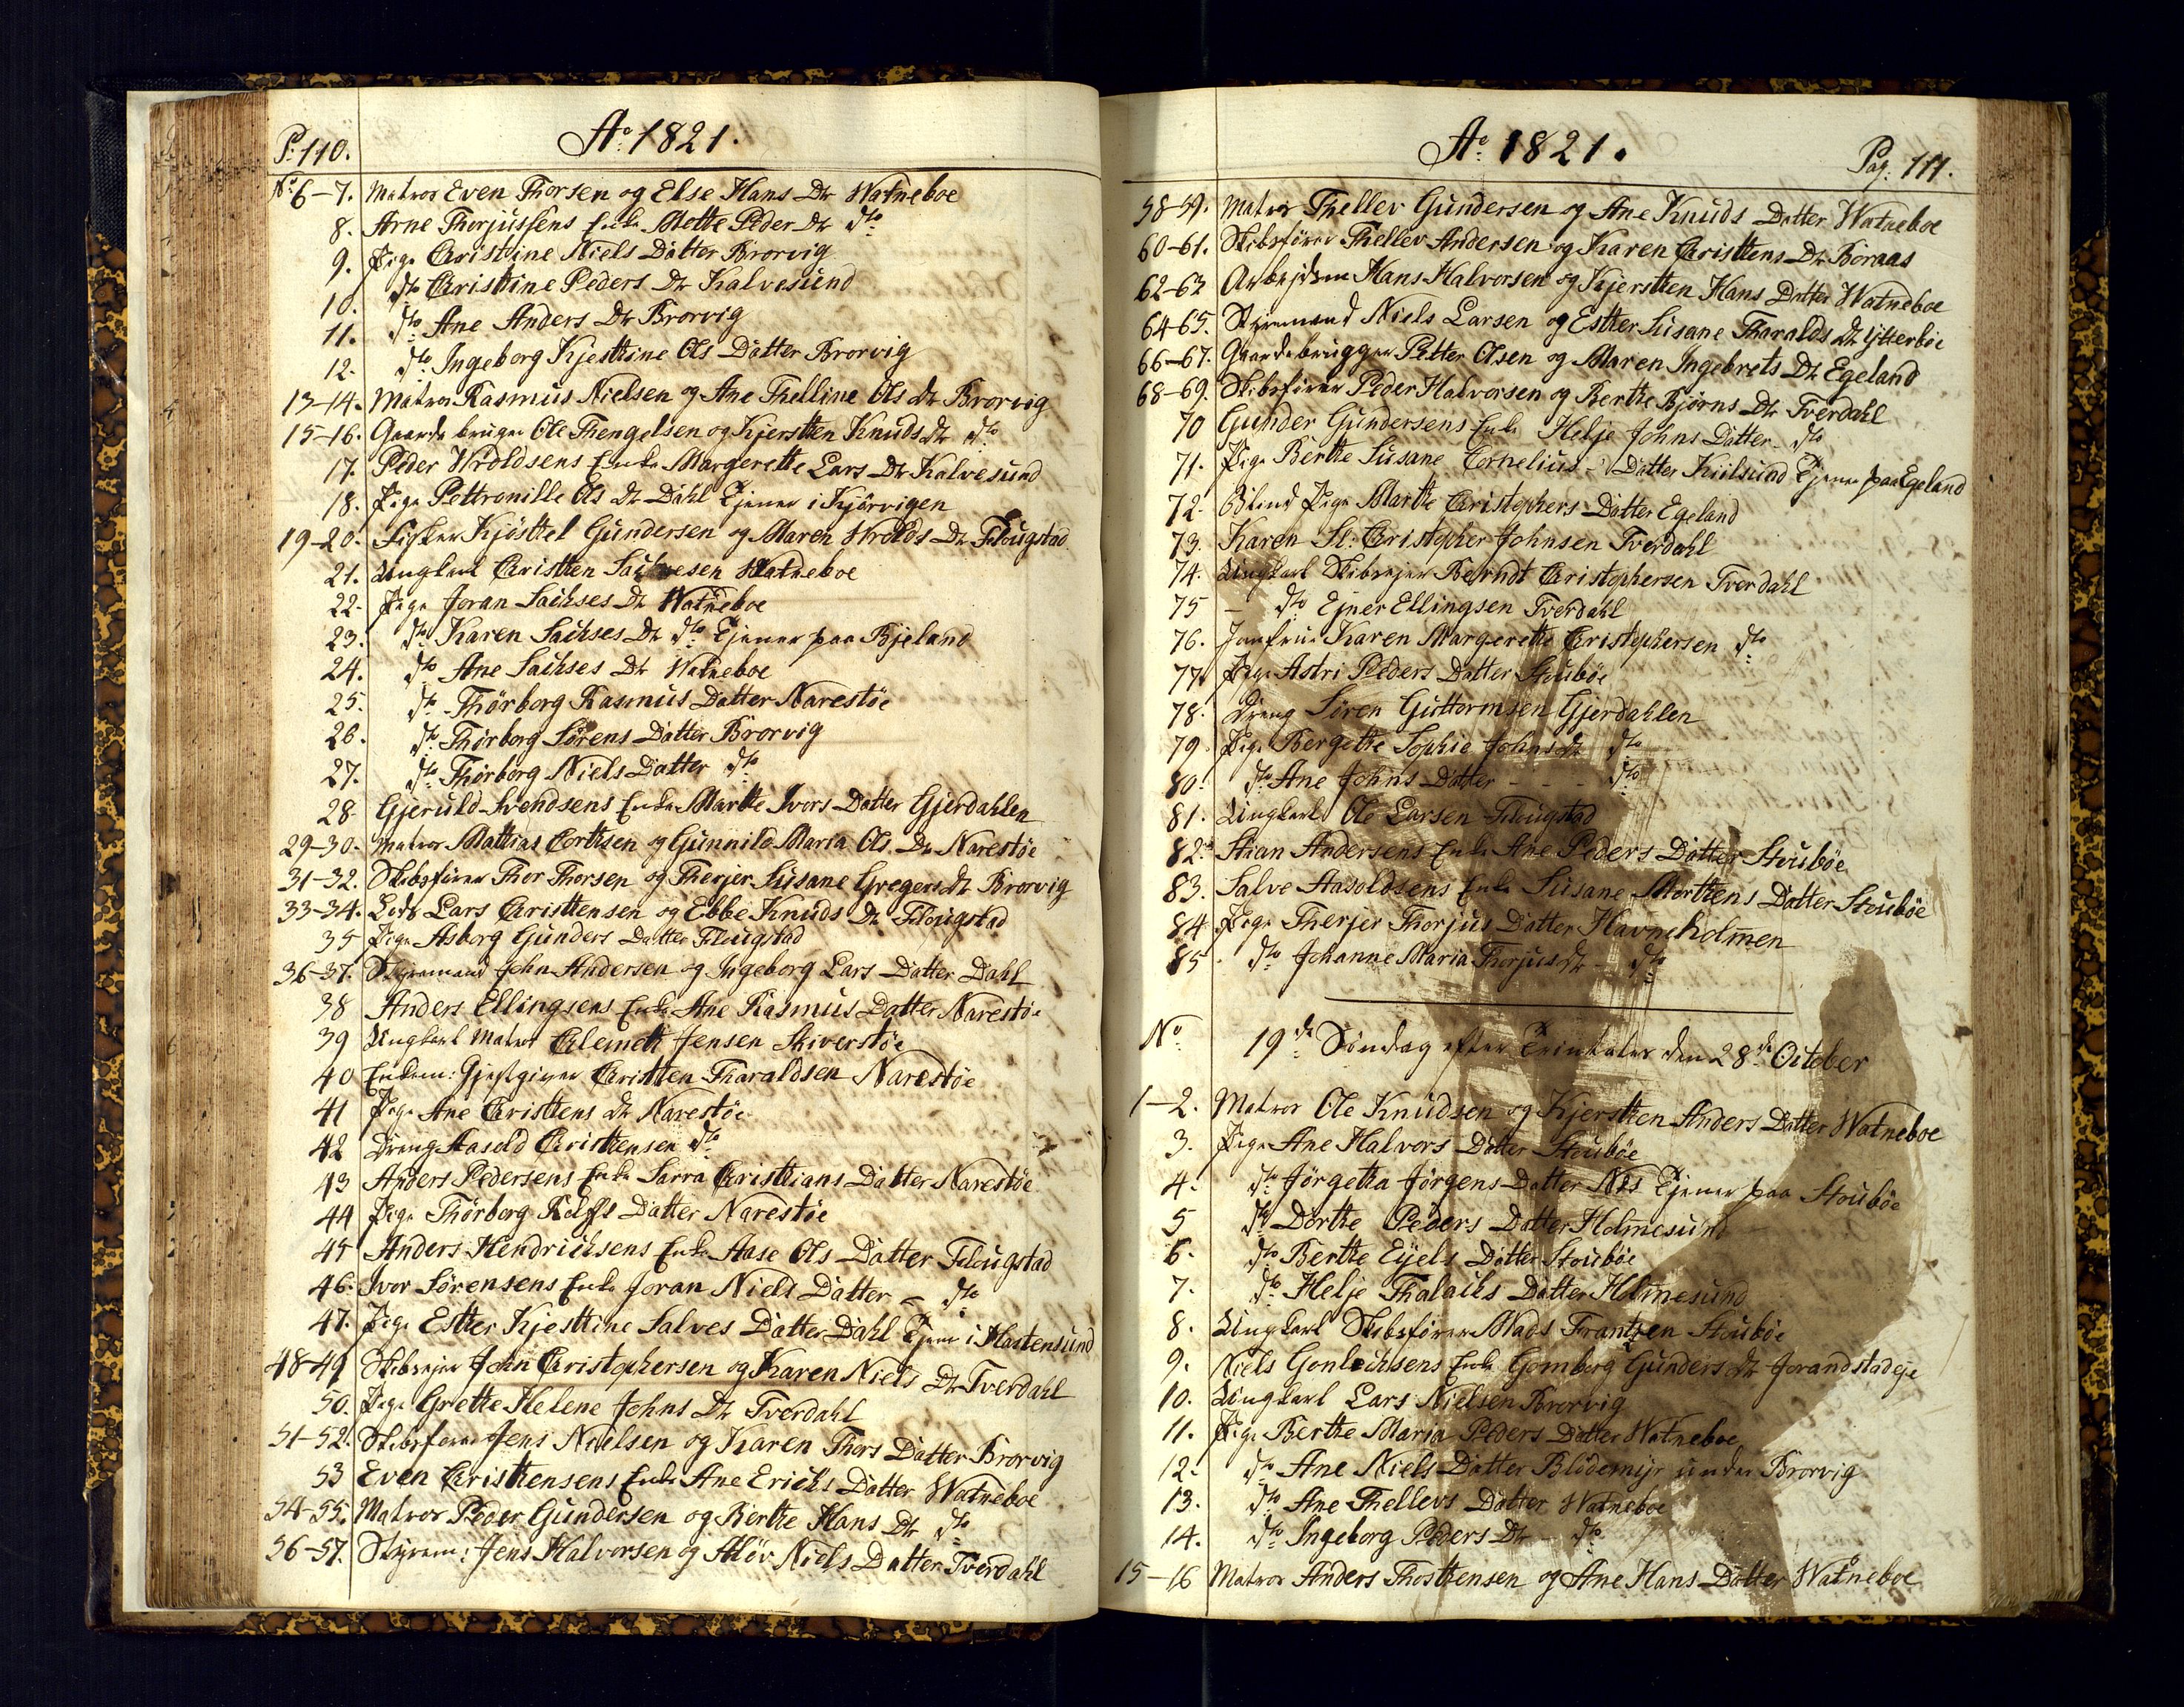 P: 110.
Ao 1821.
No 6-7. Matros Even Thorsen og Else Hans Dtr Watneboe
8. Arne Thorjussens Enke Mette Peder Dtr dto
9. Pige Christine Niels Datter Brorvig
10. dto Christine Peders Dtr Kalvesund
11. dto Ane Anders Dtr Brorvig
12. dto Ingeborg Kjesthine Ols Datter Brorvig
13-14. Matros Rasmus Nielsen og Ane Thelline Ols Dtr Brorvig
15-16. Gaardbruger Ole Thengelsen og Kjersthen Knuds Dtr dto
17. Peder Wroldsens Enke Margerethe Lars Dtr Kalvesund
18. Pige Pettronille Ols Dtr Dahl Tjener i Kjørvigen
19-20. Fisker Kjøsttel Gundersen og Maren Wrolds Dtr Flougstad
21. Ungkarl Christhen Sachsesen Watneboe
22. Pige Joran Sachses Dtr Watneboe
23. dto Karen Sachses Dtr dto Tjener paa Bjeland
24. dto Ane Sachses Dtr Watneboe
25. dto Thørborg Rasmus Datter Narestøe
26. dto Thørborg Sørens Datter Brorvig
27. dto Thørborg Niels Datter dto
28 Gjeruld Svendsens Enke Marthe Ivors Datter Gjerdahlen
29-30. Matros Mathias Corthsen og Gunnild Maria Ols Dtr Narestøe
31-32. Skibsfører Thor Thorsen og Therjer Susane Gregers Dtr Brorvig
33-34. Lods Lars Christhensen og Ebbe Knuds Dtr Flougstad
35 Pige Asborg Gunders Datter Flougstad
36-37. Styrmand John Andersen og Ingeborg Lars Datter Dahl
38 Anders Ellingsens Enke Ane Rasmus Datter Narestøe
39 Ungkarl Matros Clemeth Jensen Skiverstøe
40 Enkem: Gjestgiver Christhen Tharaldsen Narestøe
41 Pige Ane Christhens Dtr Narestøe
42 Dreng Aasold Christhensen dto
43 Anders Pedersens Enke Sarra Christhians Datter Narestøe
44 Pige Thørborg Rolfs Datter Narestøe
45 Anders Hendrichsens Enke Aase Ols Datter Flougstad
46. Ivor Sørensens Enke Joran Niels Datter - dto
47. Pige Esther Kjesthine Salves Datter Dahl Tjener i Hastensund
48-49 Skibsejer John Christophersen og Karen Niels Dtr Tverdahl
50. Pige Grethe Helene Johns Dtr Tverdahl
51-52. Skibsfører Jens Nielsen og Karen Thors Datter Brorvig
53 Even Christhensens Enke Ane Erichs Datter Watneboe
54-55. Matros Peder Gundersen og Berthe Hans Dtr dto
56-57. Styrm: Jens Halvorsen og Aløv Niels Datter Tverdahl
Ao 1821.
Pag: 111.
58-59. Matros Thellev Gundersen og Ane Knuds Datter Watneboe
60-61. Skibsfører Thellev Andersen og Karen Christhens Dtr Boraas
62-63 Arbejdsm Hans Halvorsen og Kjersthen Hans Datter Watneboe
64-65. Styrmand Niels Larsen og Esther Susane Tharalds Dtr Ytterbøe
66-67. Gaardebrugger Petter Olsen og Maren Ingebrets Dtr Egeland
68-69. Skibsfører Peder Halvorsen og Berthe Bjørns Dtr Tverdahl
70 Gunder Gundersens Enke Helje Johns Datter dto
71. Pige Berthe Susane Cornelius - Datter Kiilsund Tjener paa Egeland
72. Blind Pige Marthe Christophers Datter Egeland
73. Karen Sl: Christopher Johnsen Tverdahl
74. Ungkarl Skibsejer Berndt Christophersen Tverdahl
75 - dto Ejner Ellingsen Tverdahl
76. Jomfrue Karen Margerethe Christophersen dto
77. Pige Astri Peders Datter Stoubøe
78. Dreng Søren Guttormsen Gjerdahlen
79. Pige Bergethe Sophie Johns Dtr dto
80. dto Ane Johns Datter - - - dto
81. Ungkarl Ole Larsen Flougstad
82. Stian Andersens Enke Ane Peders Datter Stoubøe
83. Salve Aasoldsens Enke Susane Morthens Datter Stoubøe
84 Pige Therjer Thorjus Datter Havneholmen
85. dto Johanne Maria Thorjus Dtr - dto
No 19de Søndag efter Trinitates den 28de October
1-2. Matros Ole Knudsen og Kjersthen Anders Datter Watneboe
3. Pige Ane Halvors Datter Stoubøe
4. dto Jørgetha Jørgens Datter Næs Tjener paa Stoubøe
5 dto Dorthe Peders Datter Holmesund
6. dto Berthe Eijels Datter Stoubøe
7. dto Helje Thalachs Datter Holmesund
8. Ungkarl Skibsfører Mads Frantzen Stoubøe
9. Niels Gonlechsens Enke Gomborg Gunders Dtr Jorandstadeje
10. Ungkarl Lars Nielsen Brorvig
11. Pige Berthe Maria Peders Datter Watneboe
12. dto Ane Niels Datter Blødemijr under Brorvig
13. dto Ane Thellevs Datter Watneboe
14. dto Ingeborg Peders Dtr - dto
15-16 Matros Anders Thosthensen og Ane Hans Datter Watneboe